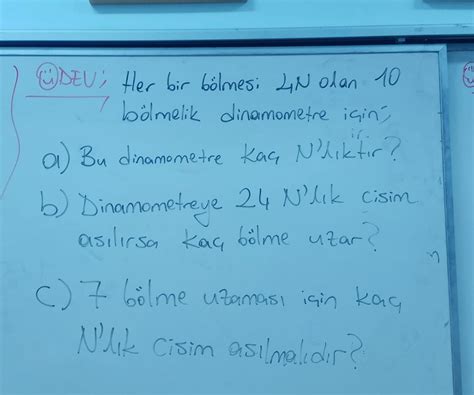 ÖDEV; Her bir bölmesi 4N olan 10
bölmelik dinamometre için;
a) Bu dinamometre kaç N'lıktır?
b) Dinamometreye 24 N'lık cisim
asılırsa kaç bölme uzar?
c) 7 bölme uzaması için kaç
N'lık cisim asılmalıdır?